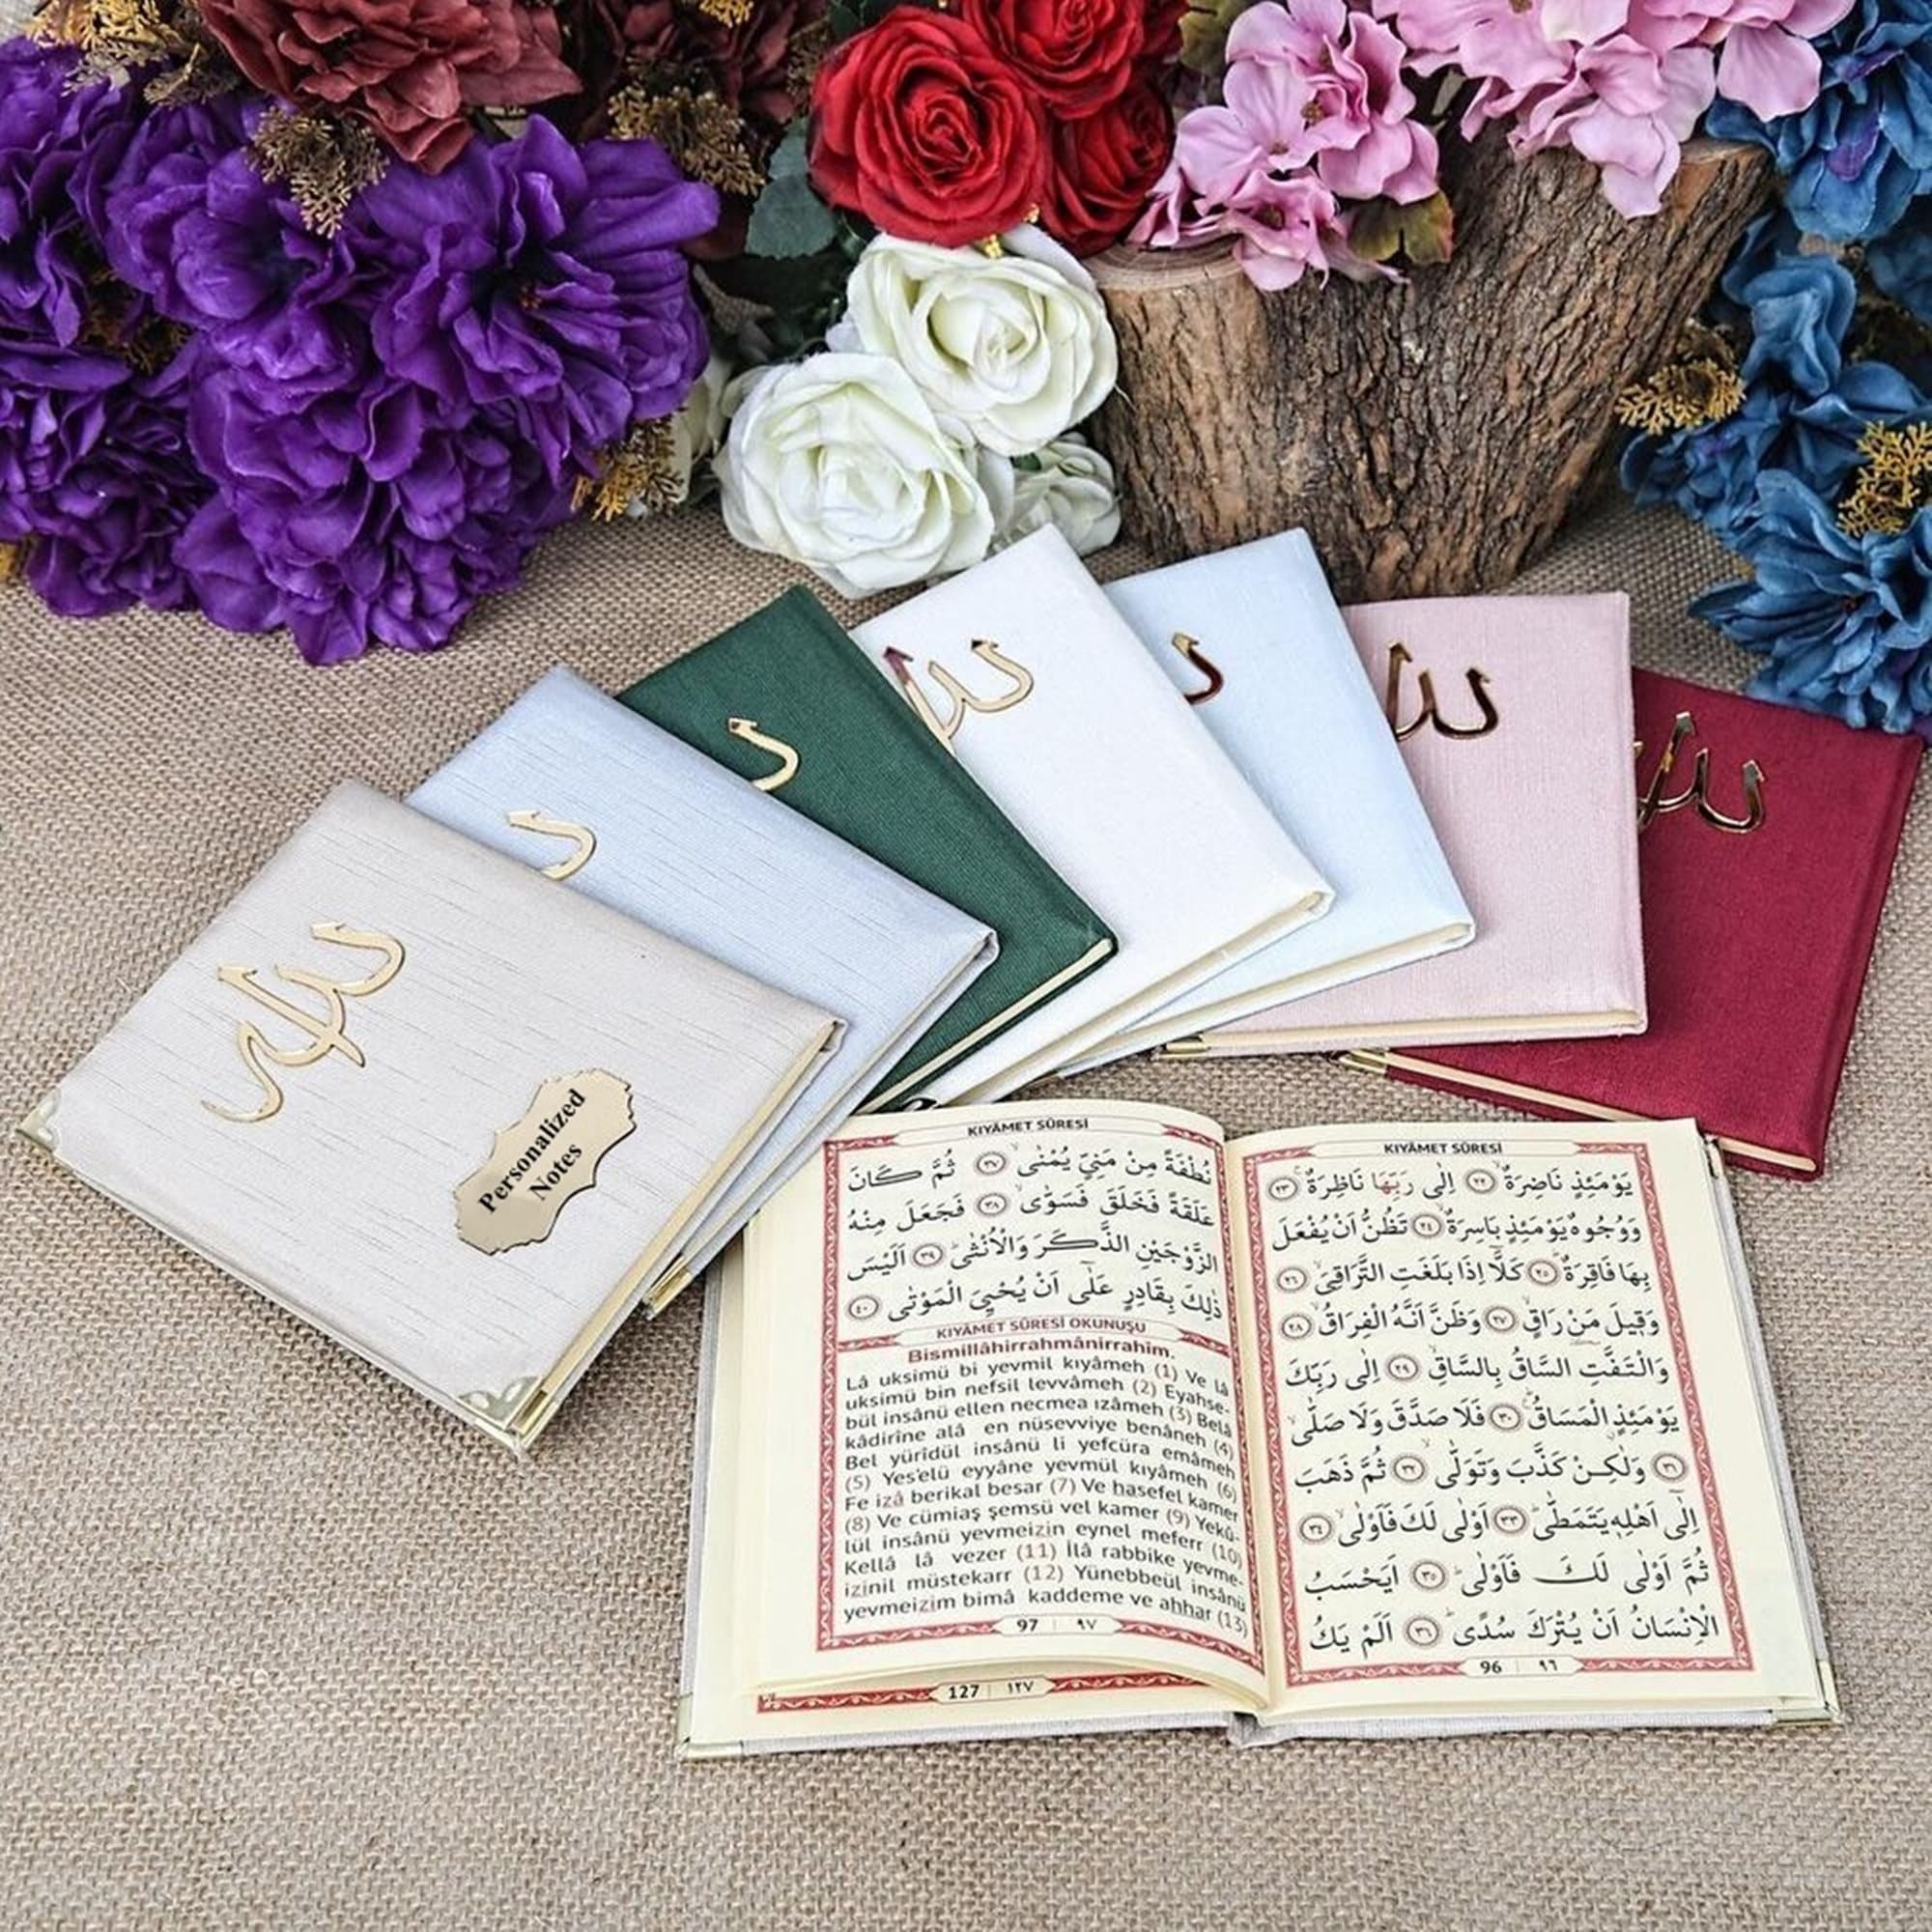 Personalized
Notes
KIYÂMET SÛRESİ
يَوْمَئِذٍ نَاضِرَةٌ ﴿٢٢﴾ اِلٰى رَبِّهَا نَاظِرَةٌ ﴿٢٣﴾
وَوُجُوهٌ يَوْمَئِذٍ بَاسِرَةٌ ﴿٢٤﴾ تَظُنُّ اَنْ يُفْعَلَ
بِهَا فَاقِرَةٌ ﴿٢٥﴾ كَلَّٓا اِذَا بَلَغَتِ التَّرَاقِيَ ﴿٢٦﴾
وَقِيلَ مَنْ رَاقٍ ﴿٢٧﴾ وَظَنَّ اَنَّهُ الْفِرَاقُ ﴿٢٨﴾
وَالْتَفَّتِ السَّاقُ بِالسَّاقِ ﴿٢٩﴾ اِلٰى رَبِّكَ
يَوْمَئِذٍ الْمَسَاقُ ﴿٣٠﴾ فَلَا صَدَّقَ وَلَا صَلّٰى
﴿٣١﴾ وَلٰكِنْ كَذَّبَ وَتَوَلّٰى ﴿٣٢﴾ ثُمَّ ذَهَبَ
اِلٰٓى اَهْلِهٖ يَتَمَطّٰى ﴿٣٣﴾ اَوْلٰى لَكَ فَاَوْلٰى ﴿٣٤﴾
ثُمَّ اَوْلٰى لَكَ فَاَوْلٰى ﴿٣٥﴾ اَيَحْسَبُ
الْاِنْسَانُ اَنْ يُتْرَكَ سُدًى ﴿٣٦﴾ اَلَمْ يَكُ
96 ٩٦
KIYÂMET SÛRESİ
نُطْفَةً مِنْ مَنِيٍّ يُمْنٰى ﴿٣٧﴾ ثُمَّ كَانَ
عَلَقَةً فَخَلَقَ فَسَوّٰى ﴿٣٨﴾ فَجَعَلَ مِنْهُ
الزَّوْجَيْنِ الذَّكَرَ وَالْاُنْثٰى ﴿٣٩﴾ اَلَيْسَ
ذٰلِكَ بِقَادِرٍ عَلٰٓى اَنْ يُحْيِيَ الْمَوْتٰى ﴿٤٠﴾
KIYÂMET SÛRESİ OKUNUŞU
Bismillâhirrahmânirrahim.
Lâ uksimü bi yevmil kıyâmeh (1) Ve lâ
uksimü bin nefsil levvâmeh (2) Eyahse-
bül insânü ellen necmea ızâmeh (3) Belâ
kâdirîne alâ en nüsevviye benâneh (4)
Bel yürîdül insânü li yefcüra emâmeh
(5) Yes'elü eyyâne yevmül kıyâmeh (6)
Fe izâ berikal besar (7) Ve hasefel kamer
(8) Ve cümiaş şemsü vel kamer (9) Yekû-
lül insânü yevmeizin eynel meferr (10)
Kellâ lâ vezer (11) İlâ rabbike yevme-
izinil müstekarr (12) Yünebbeül insânü
yevmeizim bimâ kaddeme ve ahhar (13)
97 ٩٧
127 ١٢٧